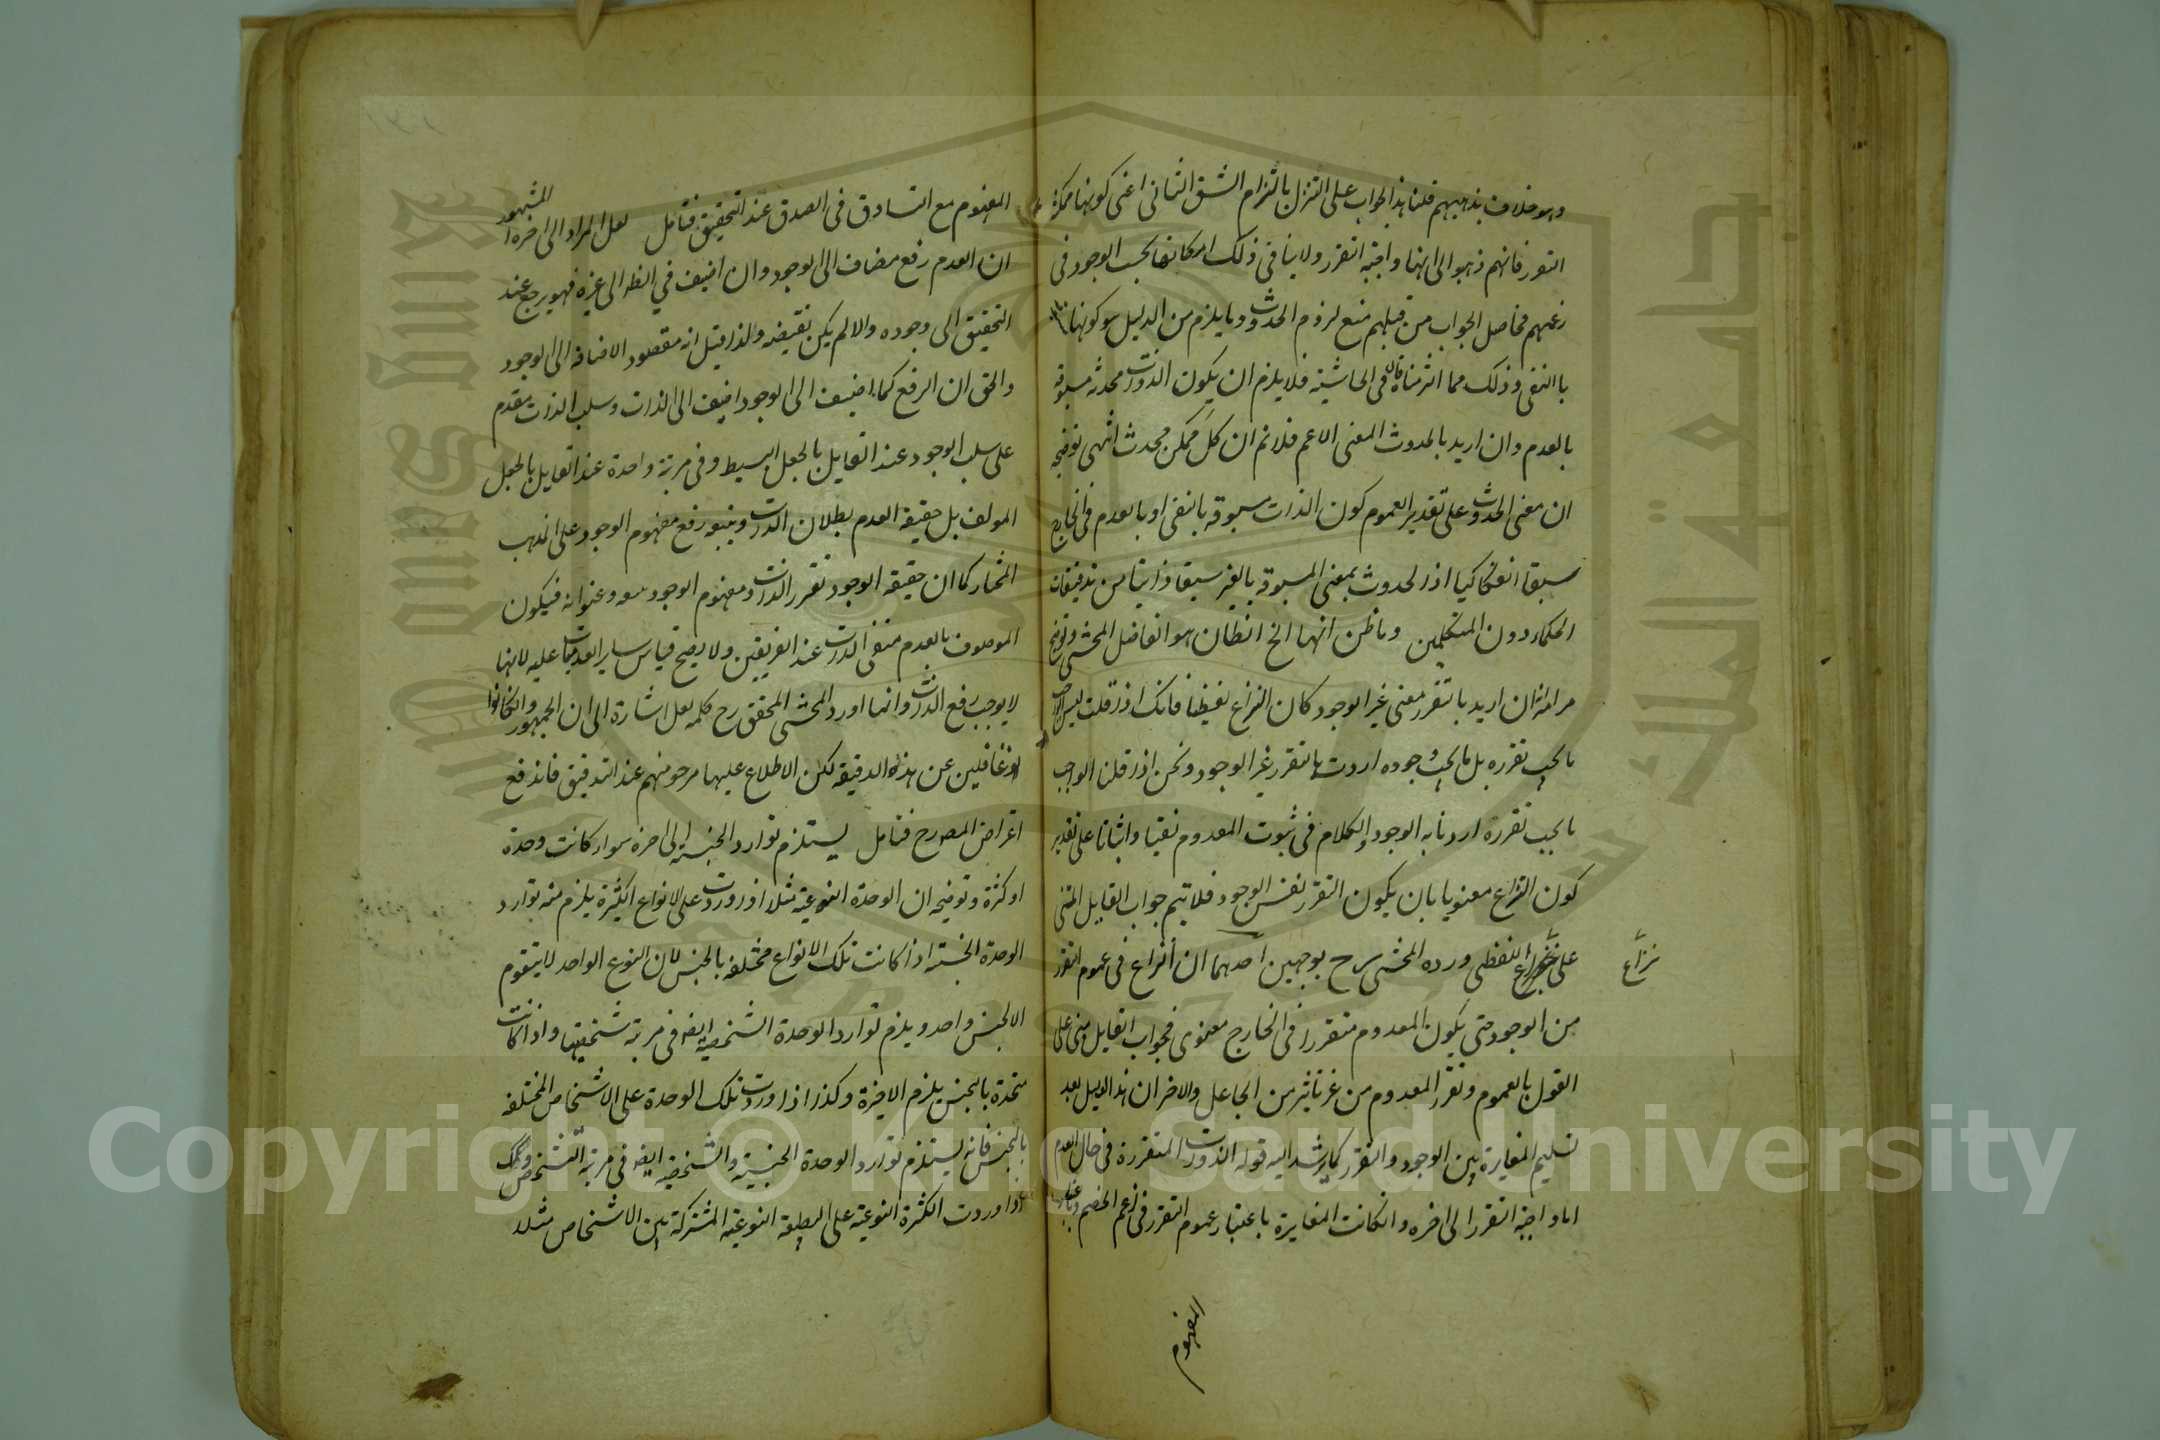 وهو خلاف مذهبهم قلنا هذا الجواب على التنزل بالتزام الشق الثاني اعنى كونها ممكنة
التقرر فانهم ذهبوا الى انها واجبة التقرر ولا ينافى ذلك امكانها بحسب الوجود فى
زعمهم فحاصل الجواب من قبلهم منع لزوم الحدوث وما يلزم من الدليل هو كونها
بالنفى وذلك مما التزمناه فى الحاشية فلا يلزم ان يكون الذوات محدثة مسبوقة
بالعدم وان اريد بالحدوث المعنى الاعم فلانم ان كل ممكن محدث انتهى توضيحه
ان معنى الحدوث على تقدير العموم كون الذات مسبوقة بالنفى او بالعدم فى الخارج
سبقا انفكاكيا اذ الحدوث بمعنى المسبوقية بالغير سبقا ذاتيا من تدقيقات
الحكماء دون المتكلمين وما ظن انها الخ الظان هو الفاضل المحشى وتوضيح
مرامه ان اريد بالتقرر معنى غير الوجود كان النزاع لفظيا فانك اذا قلت ليس الواجب
ما يجب تقرره بل ما يجب وجوده اردت بالتقرر غير الوجود ونحن اذا قلنا الواجب
ما يجب تقرره اردنا به الوجود والكلام فى ثبوت المعدوم نفيا واثباتا على تقدير
كون النزاع معنويا بان يكون التقرر نفس الوجود فلا يتم جواب القايل المبنى
على نزاع اللفظى ورده المحشى رح بوجهين احدهما ان النزاع فى عموم التقرر
نزاع
من الوجود حتى يكون المعدوم متقررا فى الخارج معنوى فجواب القايل مبنى على
القول بالعموم وتقرر المعدوم من غير تاثير من الجاعل والاخر ان هذا الدليل بعد
تسليم المغايرة بين الوجود والتقرر كما يرشد اليه قوله الذوات المتقررة فى حال العدم
اما واجبة التقرر الى اخره وان كانت المغايرة باعتبار عموم التقرر فى زعم الخصم
المفهوم
المفهوم مع التساوق فى الصدق عند التحقيق فتامل لعل المراد الى اخره المشهور
ان العدم رفع مضاف الى الوجود وان اضيف فى الظ الى غيره فهو يرجع عند
التحقيق الى وجوده والا لم يكن نقيضه ولذا قيل انه مقصود الاضافة الى الوجود
والحق ان الرفع كما اضيف الى الوجود اضيف الى الذات وسلب الذات مقدم
على سلب الوجود عند القايل بالجعل البسيط وفى مرتبة واحدة عند القايل بالجعل
المولف بل حقيقة العدم بطلان الذات ويتبعه رفع مفهوم الوجود على المذهب
المختار كما ان حقيقة الوجود تقرر الذات ومفهوم الوجود وعنوانه فيكون
الموصوف بالعدم منفى الذات عند الفريقين ولا يصح قياس ساير العدميات عليه لانها
لا يوجب رفع الذات وانما اورد المحشى المحقق رح كلمة لعل اشارة الى ان الجمهور وان كانوا
غافلين عن هذه الدقيقة لكن الاطلاع عليها مرجو منهم عند التدقيق فاندفع
اعراض المص رح فتامل يستلزم توارد الجنسية الى اخره سواء كانت وحدة
او كثرة وتوضيحه ان الوحدة النوعية مثلا اذا وردت على الانواع الكثيرة يلزم منه توارد
الوحدة الجنسية اذا كانت تلك الانواع مختلفة بالجنس لان النوع الواحد لا يتقوم
الا لجنس واحد ويلزم توارد الوحدة الشخصية ايضا فى مرتبة شخصيتها واذا كانت
متحدة بالجنس يلزم الاخيرة وكذا اذا وردت تلك الوحدة على الاشخاص المختلفة
بالجنس فانه يستلزم توارد الوحدة الجنسية والشخصية ايضا فى مرتبة التشخص
اذا وردت الكثرة النوعية على الطبيعة النوعية المشتركة بين الاشخاص مثلا
Copyright © King Saud University